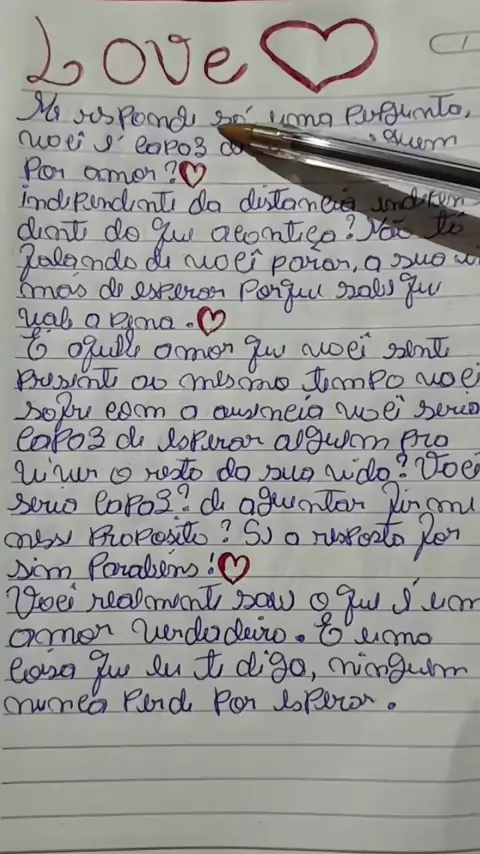 Love
Me responde só uma pergunta,
você é capaz de quem
por amor?
independente da distancia indepen
dente do que aconteça? Não tô
falando de você parar, a sua vi
mas de esperar porque sabe que
vale a pena.
É aquele amor que você sente
presente ao mesmo tempo você
sofre com a ausencia você seria
capaz de esperar alguem pra
viver o resto da sua vida? Você
seria capaz? de aguentar firme
nesse proposito? Se a resposta for
sim Parabéns!
Você realmente sabe o que é um
amor verdadeiro. E uma
coisa que eu te digo, ninguem
nunca perde por esperar.